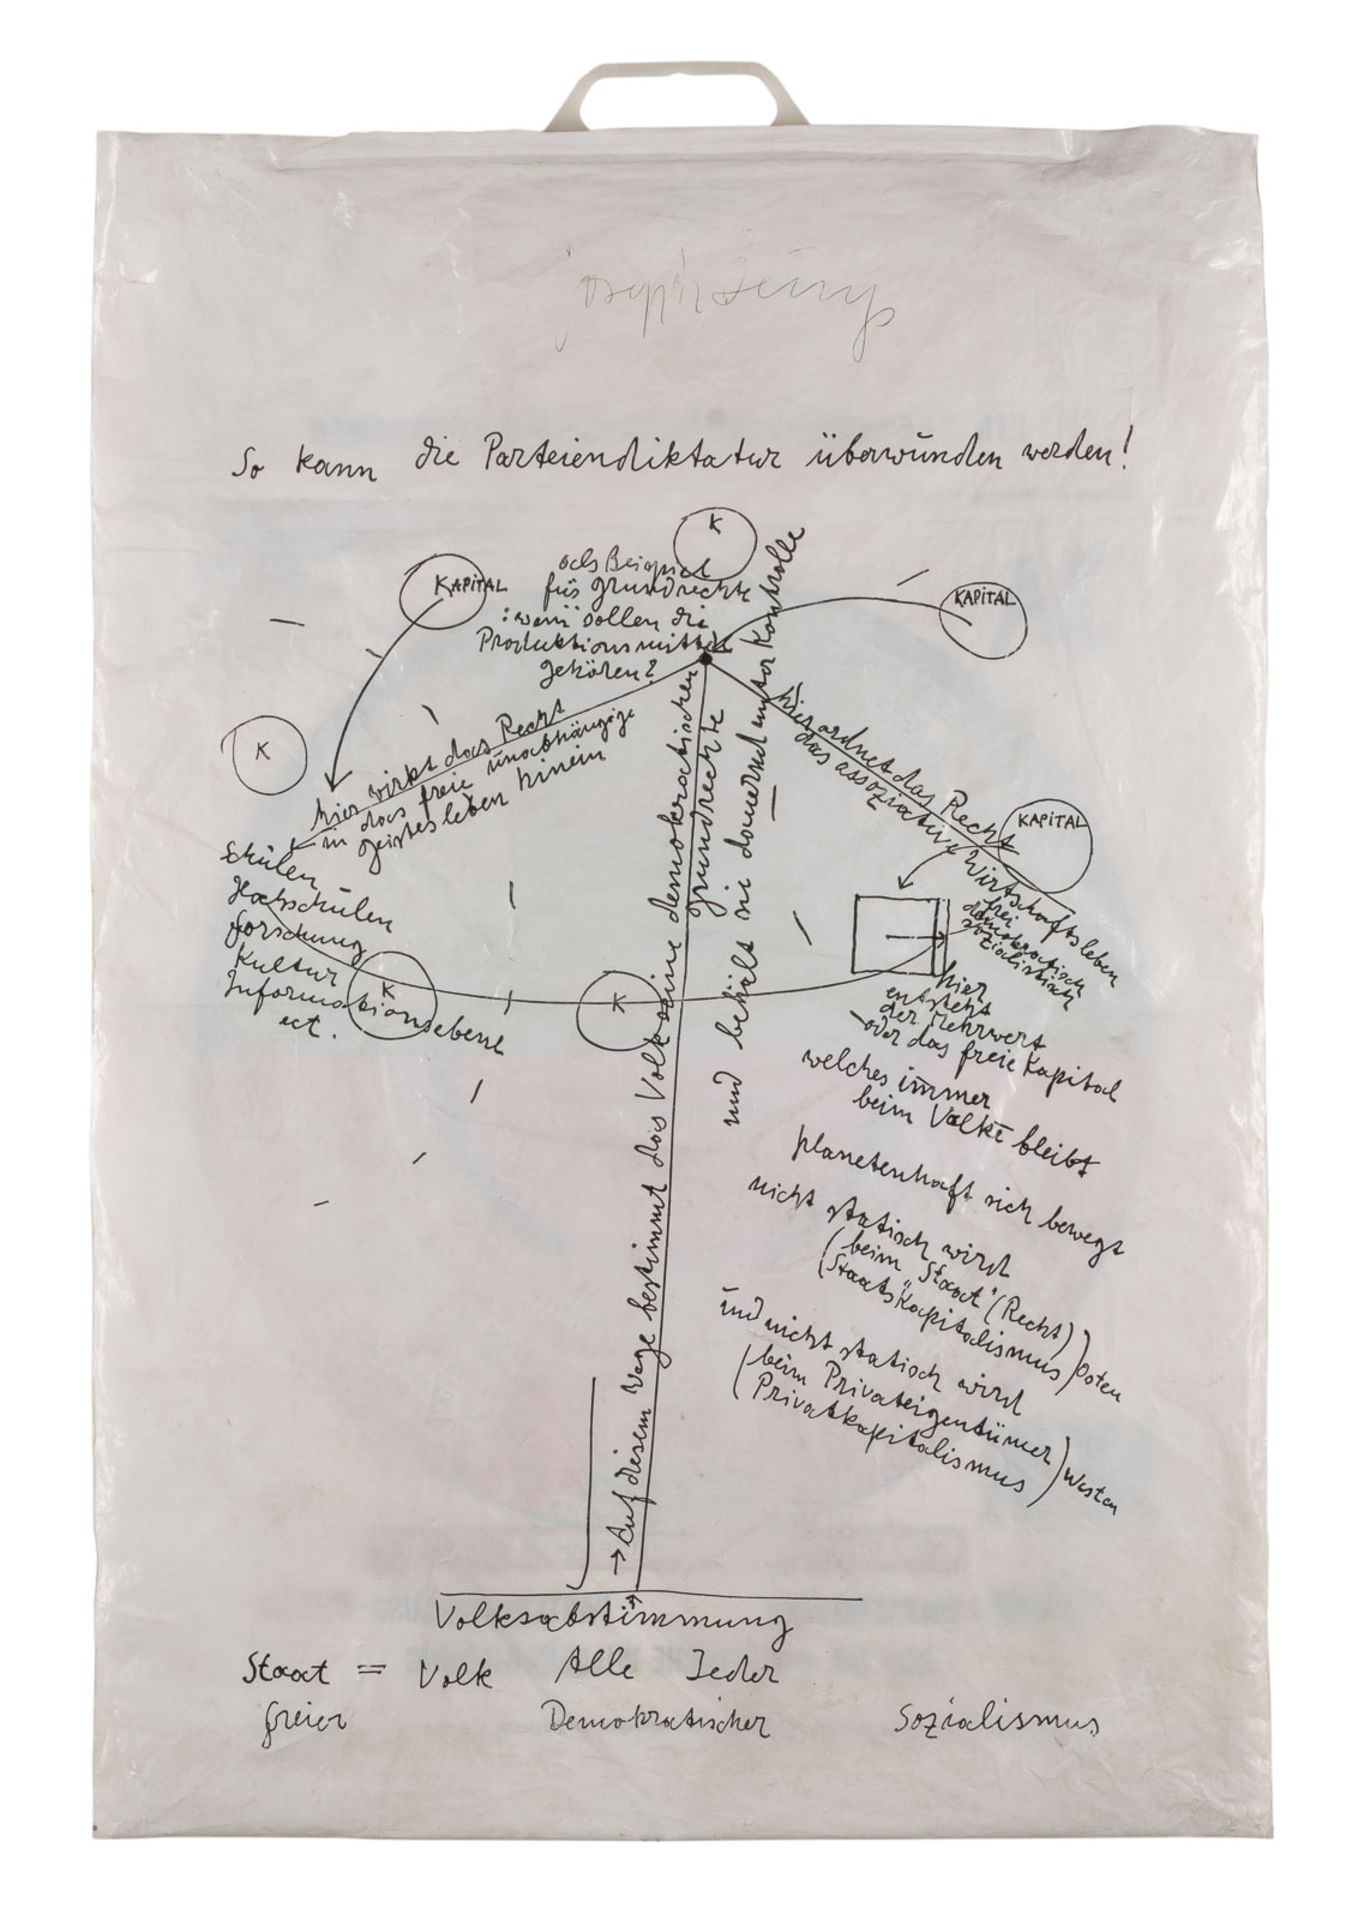 So kann die Parteiendiktatur überwunden werden!
K
KAPITAL
als Beispiel
für Grundrechte
: wem sollen die
Produktionsmittel
gehören?
KAPITAL
K
hier wirkt das Recht
in das freie unabhängige
Geistesleben hinein
Schulen
Hochschulen
Forschung
Kultur
Informationsebene
ect.
K
K
→ Auf diesem Wege bestimmt das Volk seine demokratischen
Grundrechte
und behält sie dauernd unter Kontrolle
hier ordnet das Recht
das assoziative Wirtschaftsleben
frei
demokratisch
sozialistisch
KAPITAL
hier
entsteht
der Mehrwert
oder das freie Kapital
welches immer
beim Volke bleibt
planetenhaft sich bewegt
nicht statisch wird
(beim „Staat“ (Recht)
(Staatskapitalismus) Osten
und nicht statisch wird
(beim Privateigentümer
(Privatkapitalismus) Westen
Volksabstimmung
Staat = Volk Alle Jeder
freier Demokratischer Sozialismus